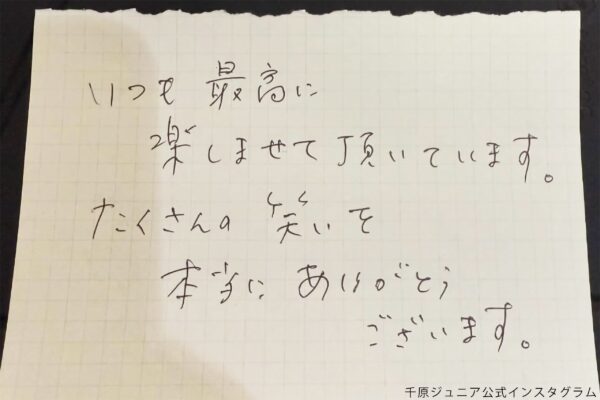 いつも 最高に
楽しませて頂いています。
たくさんの 笑いを
本当に ありがとう
ございます。
千原ジュニア公式インスタグラム